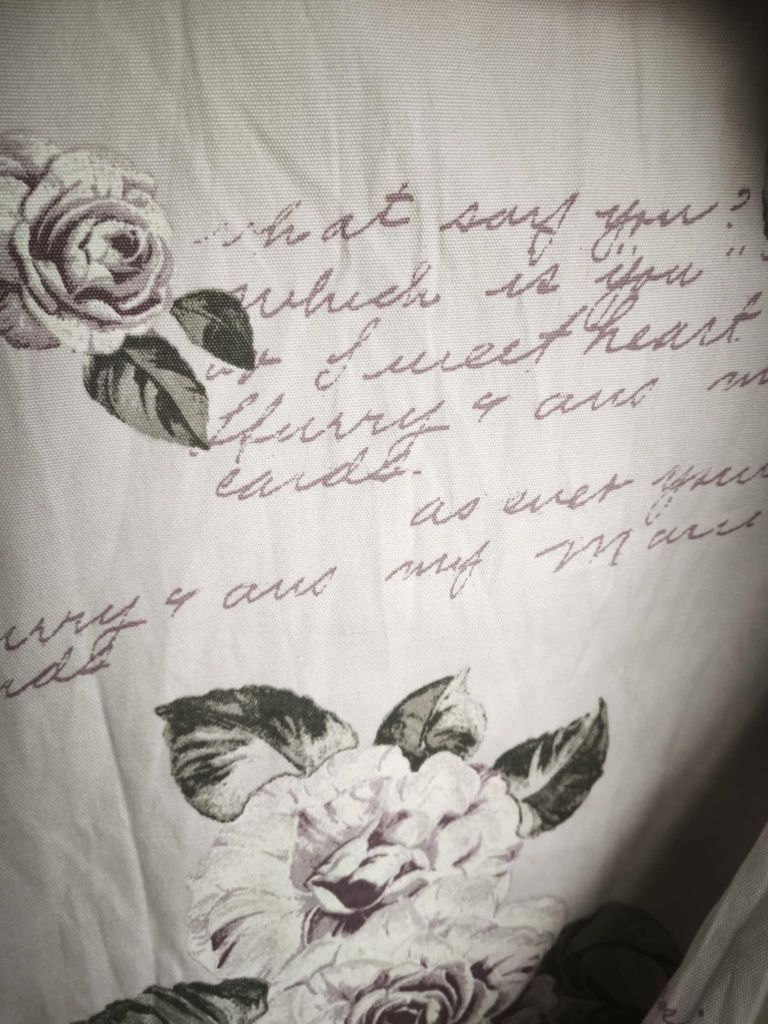 what say you?
which is you"
or Sweetheart
Hurry & ans
cards.
as ever your
urry & ans my
rds